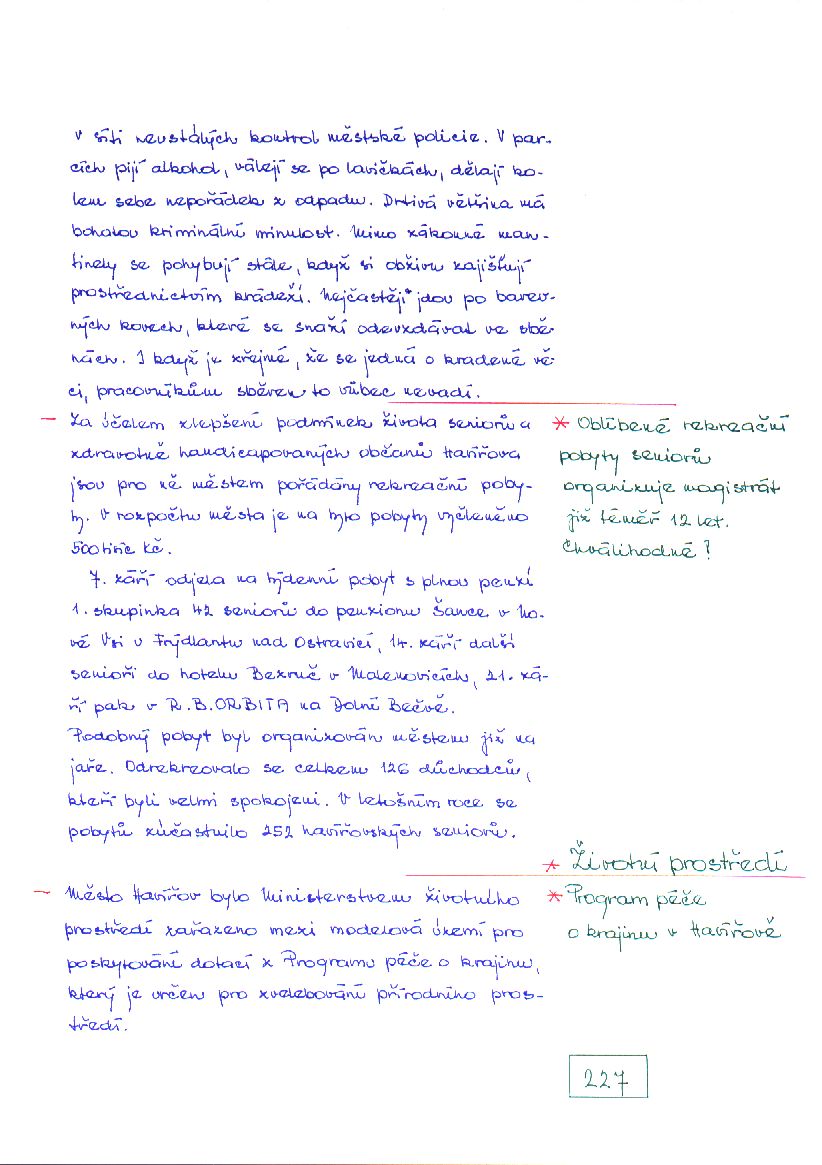 v síti neustálých kontrol městské policie. V par-
cích pijí alkohol, válejí se po lavičkách, dělají ko-
lem sebe nepořádek z odpadu. Drtivá většina má
bohatou kriminální minulost. Mimo zákonné man-
tinely se pohybují stále, když si obživu zajišťují
prostřednictvím krádeží. Nejčastěji jdou po barev-
ných kovech, které se snaží odevzdávat ve sbě-
nách. I když je zřejmé, že se jedná o kradené vě-
ci, pracovníkům sběren to vůbec nevadí.
– Za účelem zlepšení podmínek života seniorů a
zdravotně handicapovaných občanů Havířova
jsou pro ně městem pořádány rekreační poby-
ty. V rozpočtu města je na tyto pobyty vyčleněno
500 tisíc Kč.
* Oblíbené rekreační
pobyty seniorů
organizuje magistrát
již téměř 12 let.
Chválihodné!
7. září odjela na týdenní pobyt s plnou penzí
1. skupinka 42 seniorů do penzionu Šance v No-
vé Vsi u Frýdlantu nad Ostravicí, 14. září další
senioři do hotelu Bezruč v Malenovicích, 21. zá-
ří pak v R.B.ORBITA na Dolní Bečvě.
Podobný pobyt byl organizován městem již na
jaře. Odrekreovalo se celkem 126 důchodců,
kteří byli velmi spokojeni. V letošním roce se
pobytů zúčastnilo 252 havířovských seniorů.
* Životní prostředí
– Město Havířov bylo Ministerstvem životního
prostředí zařazeno mezi modelová území pro
poskytování dotací z Programu péče o krajinu,
který je určen pro zvelebování přírodního pros-
tředí.
* Program péče
o krajinu v Havířově
227